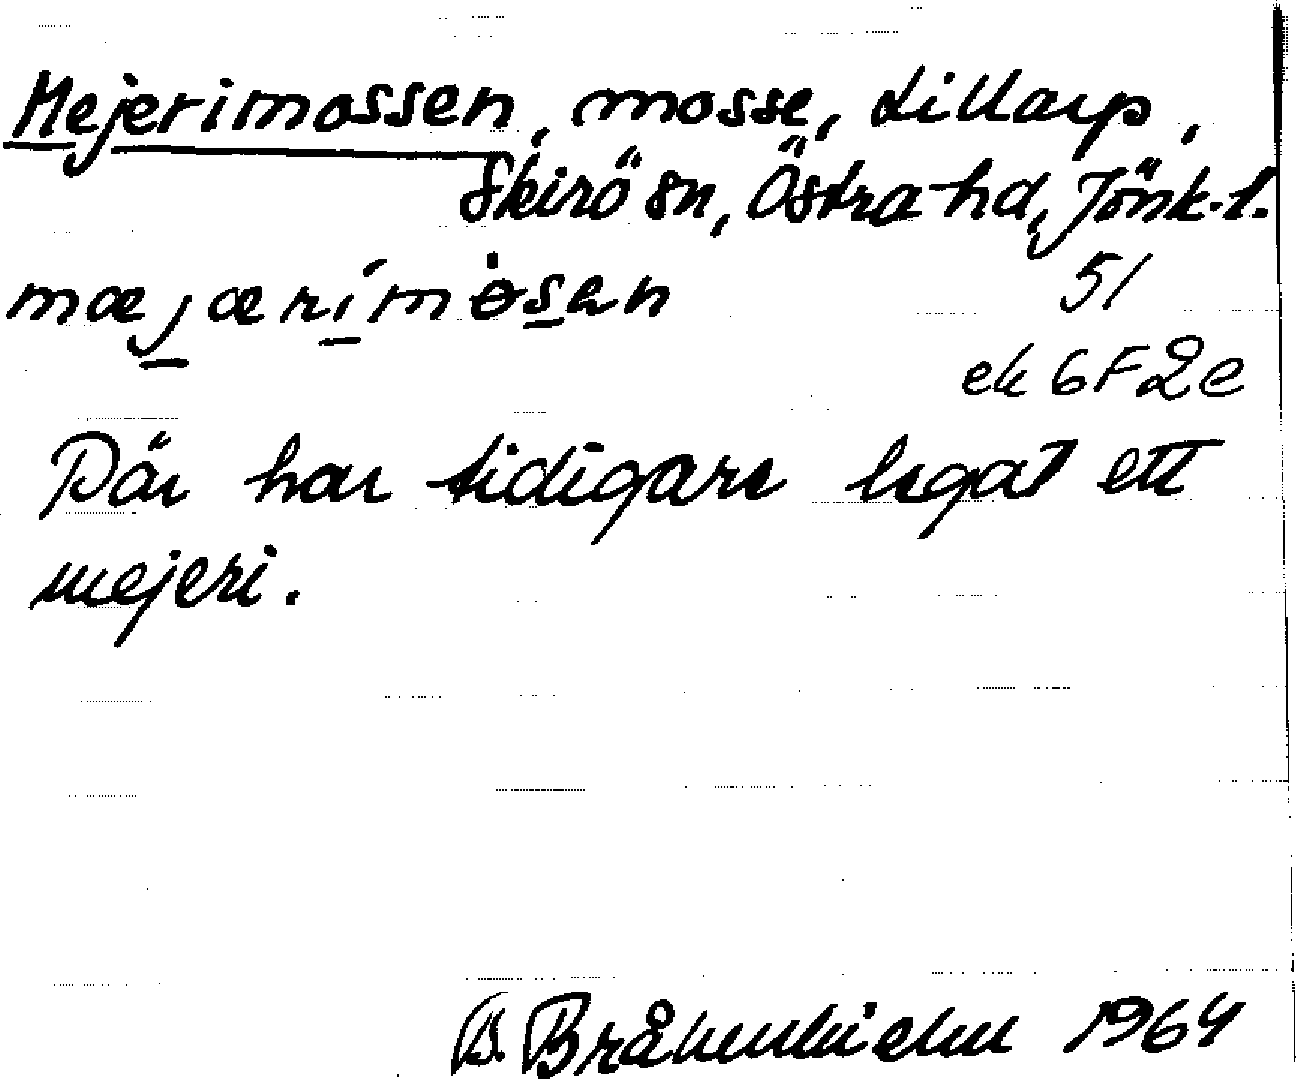 Mejerimossen, mosse, Lillarp,
Skirö sn, Östra hd, Jönk. l.
mæjærimȯsen
51
ek 6F2e
Där har tidigare legat ett
mejeri.
B. 1964